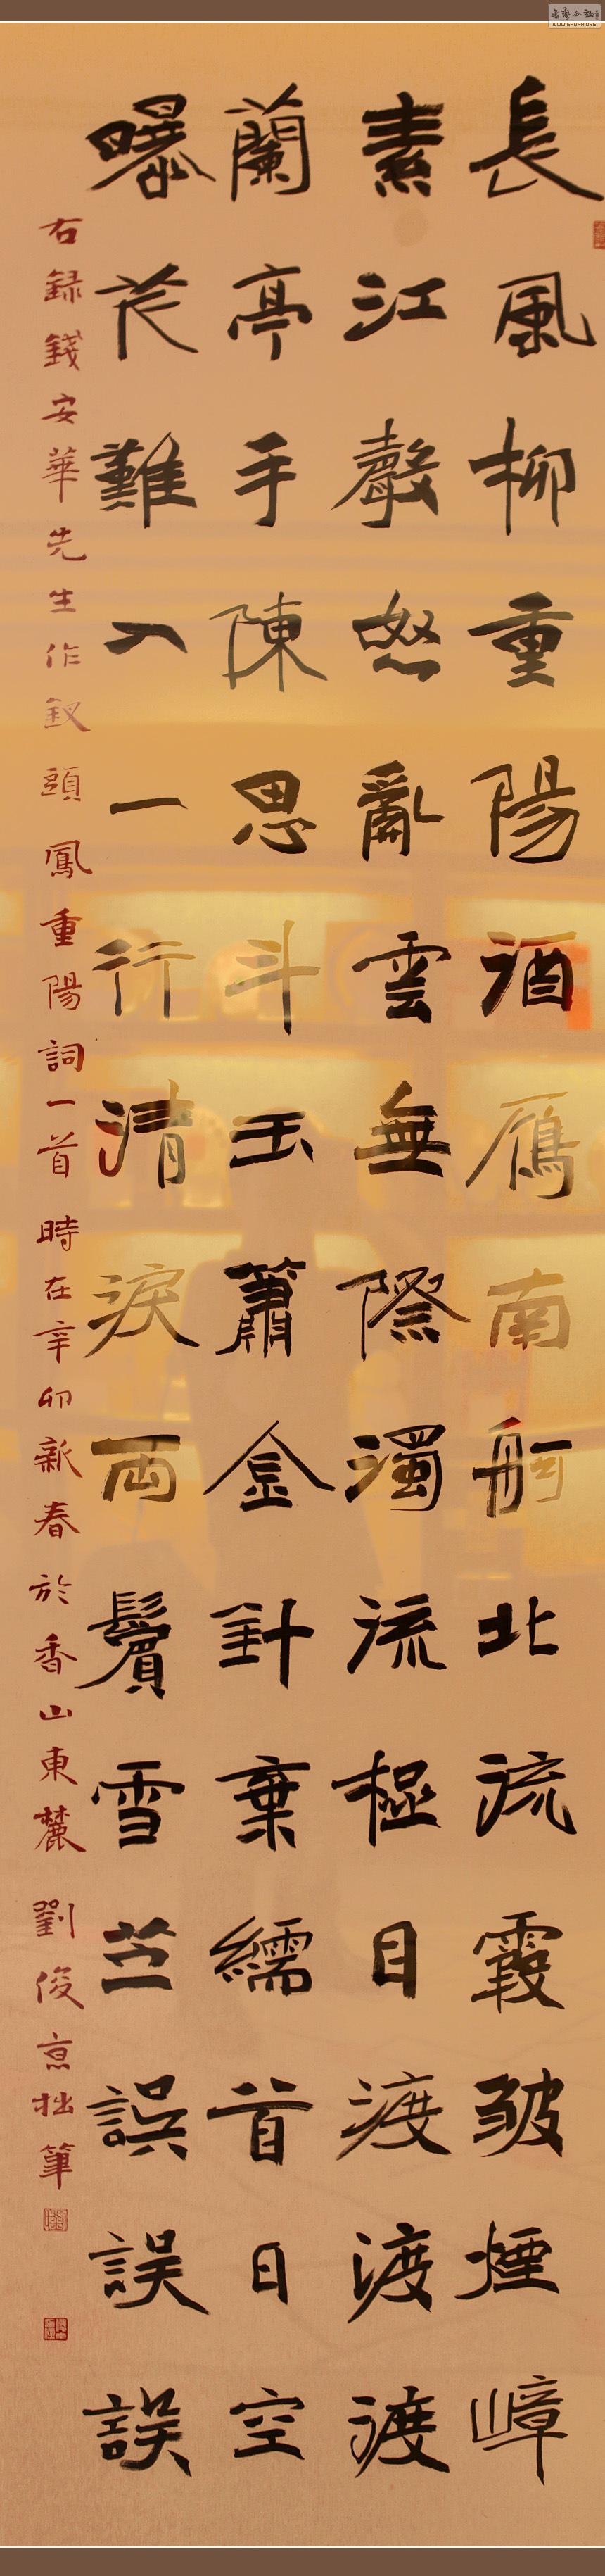 長風柳重陽酒雁南舸北流霞皺煙嶂
素江聲怒亂雲無際濁流極目渡渡渡
蘭亭手陳思斗玉簫金針棄繻首日空
曝難入一行清淚兩鬢雪誤誤誤
右録錢安華先生作釵頭鳳重陽詞一首時在辛卯新春於香山東麓劉俊京拙筆
WWW.SHUFA.ORG